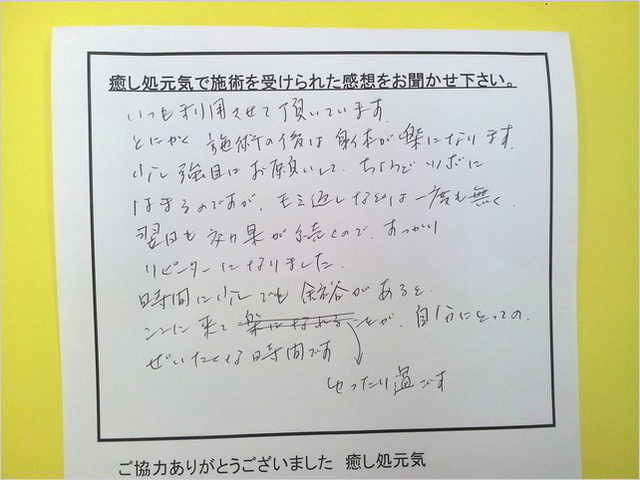 癒し処元気で施術を受けられた感想をお聞かせ下さい。
いつも利用させて頂いています。
とにかく 施術の後は身体が楽になります。
少し強目にお願いして、ちょうどツボに
はまるのですが、モミ返しなどは一度も無く、
翌日も効果が続くので、すっかり
リピーターになりました。
時間に少しでも余裕があると、
ここに来て 楽になれることが、自分にとっての、
ぜいたくな時間です
ゆったり過ごす
ご協力ありがとうございました 癒し処元気